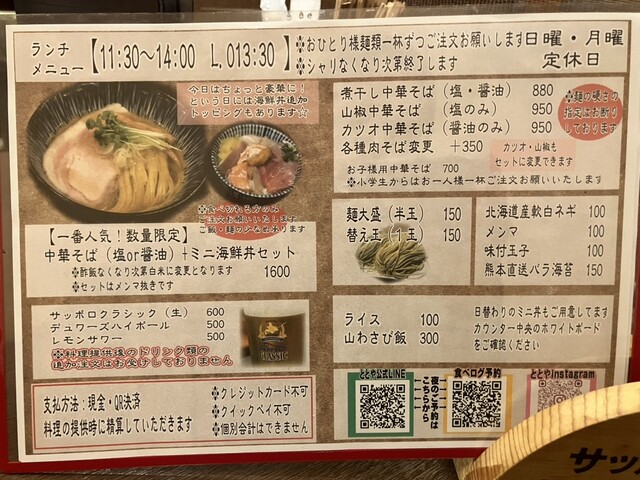 ランチ
メニュー【11:30〜14:00 L.O13:30】
※おひとり様麺類一杯ずつご注文お願いします
※シャリなくなり次第終了します
日曜・月曜
定休日
今日はちょっと豪華に!
という日には海鮮丼追加
トッピングもあります☆
※食べ切れる方のみ
ご注文お願いします
【一番人気!数量限定】
中華そば(塩or醤油)+ミニ海鮮丼セット
※酢飯なくなり次第白米に変更となります 1600
※セットはメンマ抜きです
煮干し中華そば(塩・醤油) 880
山椒中華そば(塩のみ) 950
カツオ中華そば(醤油のみ) 950
各種肉そば変更 +350
※麺の硬さの
指定はお断り
しております
カツオ・山椒も
セットに変更できます
お子様用中華そば 700
※小学生からはお一人様一杯ご注文お願いいたします
麺大盛(半玉) 150
替え玉(1玉) 150
北海道産軟白ネギ 100
メンマ 100
味付玉子 100
熊本直送バラ海苔 150
サッポロクラシック(生) 600
デュワーズハイボール 500
レモンサワー 500
※料理提供後のドリンク類の
追加注文はお受けしておりません
CLASSIC
ライス 100
山わさび飯 300
日替わりのミニ丼もご用意してます
カウンター中央のホワイトボード
をご確認ください
支払方法:現金・QR決済
料理の提供時に精算していただきます
※クレジットカード不可
※クイックペイ不可
※個別会計はできません
ととや公式LINE
夜のご予約は
こちらから
食べログ予約
ととやInstagram
サッ